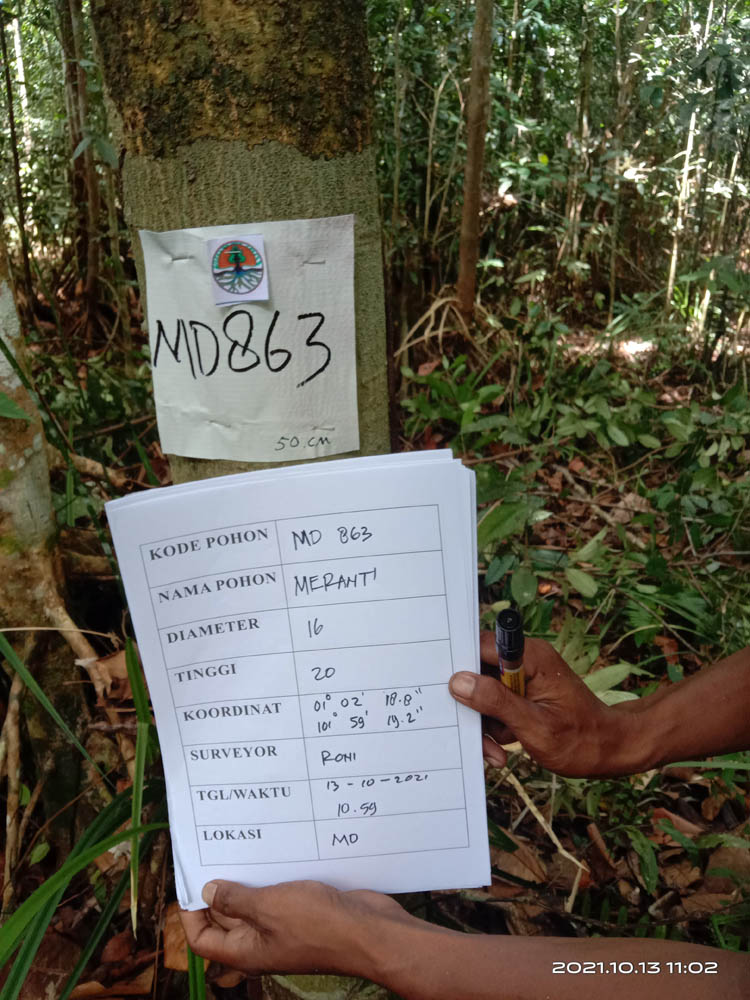 MD863
50.cm
KODE POHON MD 863
NAMA POHON MERANTI
DIAMETER 16
TINGGI 20
KOORDINAT 01° 02' 18.8"
101° 59' 19.2"
SURVEYOR RONI
TGL/WAKTU 13-10-2021
10.59
LOKASI MD
2021.10.13 11:02